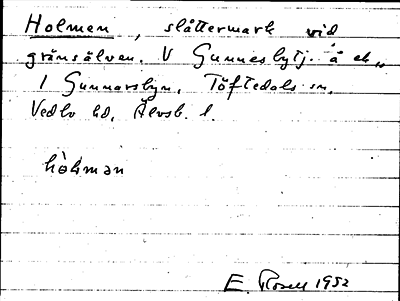 Holmen, slåttermark vid
gränsälven. V Gunnesbytj. å ek.
1 Gunnarsbyn, Töftedals sn,
Vedbo hd, Älvsb. l.
hòlman
E. Rosell 1952